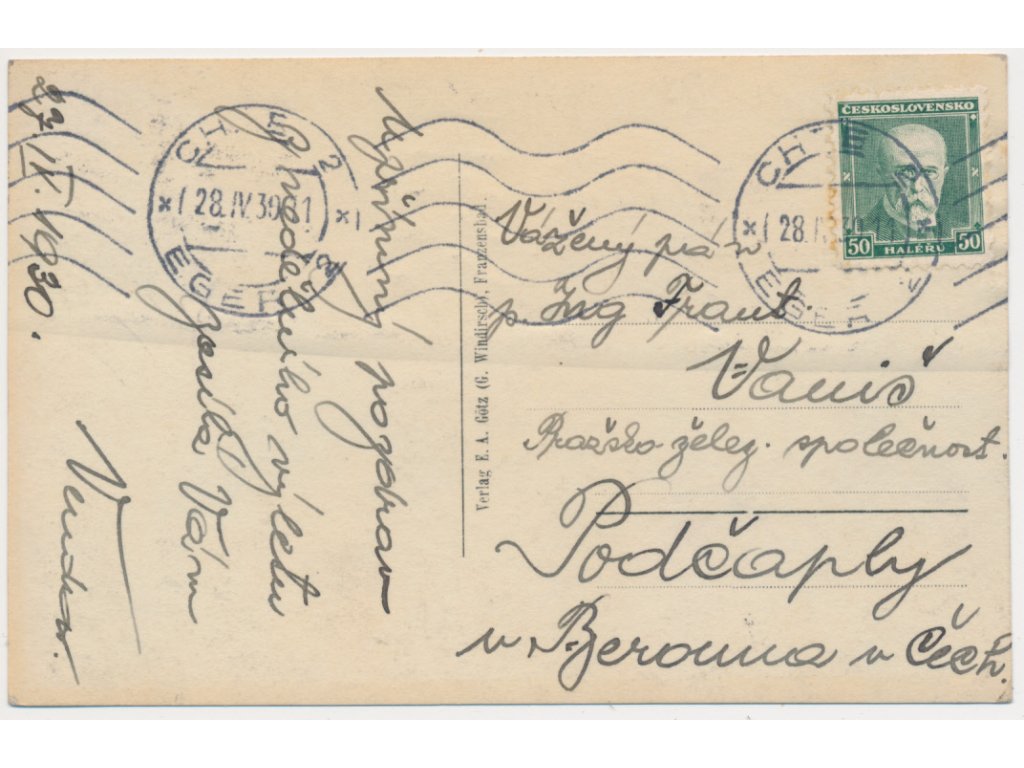 27. IV. 1930.
Upřímný pozdrav
z nedělního výletu
posílá Vám
CHEB 2
* 28. IV. 30
EGER 2
Verlag E. A. Götz (G. Windirsch), Franzensbad.
ČESKOSLOVENSKO
50 HALÉŘŮ 50
CHEB 2
* 28. IV. 30
EGER 2
Vážený pán
p. Ing Frant.
Vaniš
Pražsko želez. společnost.
Podčaply
u Berouna v Čech.